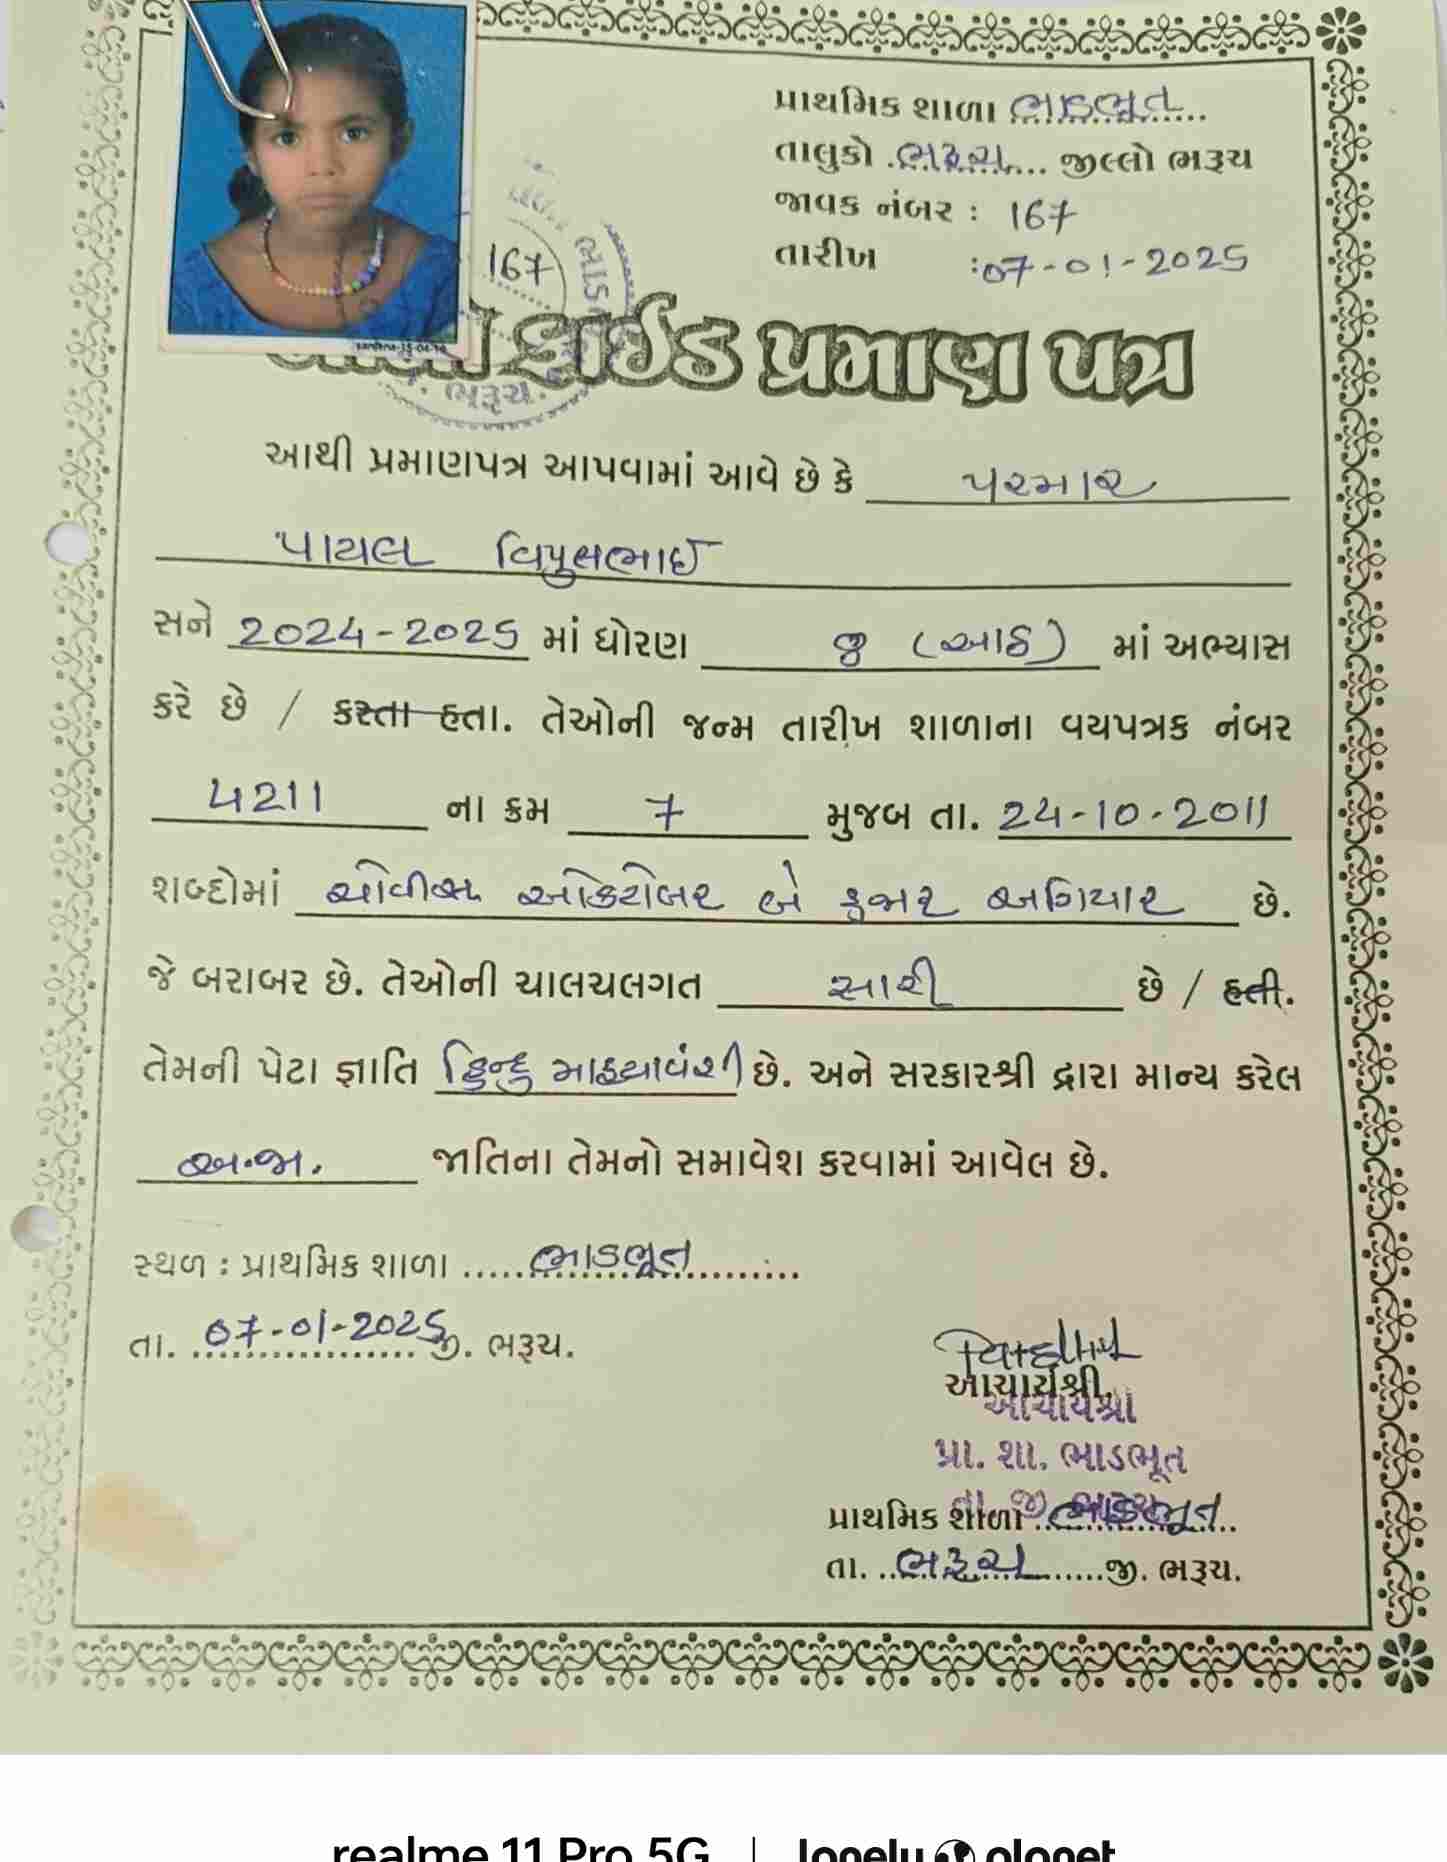 પ્રાથમિક શાળા ભાડભૂત
તાલુકો ભરૂચ જીલ્લો ભરૂચ
જાવક નંબર : 167
તારીખ :07-01-2025
167
ભરૂચ.
બોનાફાઈડ પ્રમાણ પત્ર
આથી પ્રમાણપત્ર આપવામાં આવે છે કે પરમાર
પાયલ વિપુલભાઈ
સને 2024-2025 માં ધોરણ 8 (આઠ) માં અભ્યાસ
કરે છે / કરતા હતા. તેઓની જન્મ તારીખ શાળાના વયપત્રક નંબર
4211 ના ક્રમ 7 મુજબ તા. 24-10-2011
શબ્દોમાં ચોવીસ ઓક્ટોબર બે હજાર અગિયાર છે.
જે બરાબર છે. તેઓની ચાલચલગત સારી છે / હતી.
તેમની પેટા જ્ઞાતિ હિન્દુ માહ્યાવંશી છે. અને સરકારશ્રી દ્વારા માન્ય કરેલ
અ.જા. જાતિના તેમનો સમાવેશ કરવામાં આવેલ છે.
સ્થળ : પ્રાથમિક શાળા ભાડભૂત
તા. 07-01-2025 જી. ભરૂચ.
આચાર્યશ્રી,
આચાર્યશ્રી
પ્રા. શા. ભાડભૂત
તા. જી. ભરૂચ
પ્રાથમિક શાળા ભાડભૂત
તા. ભરૂચ જી. ભરૂચ.
realme 11 Pro 5G | lonely planet